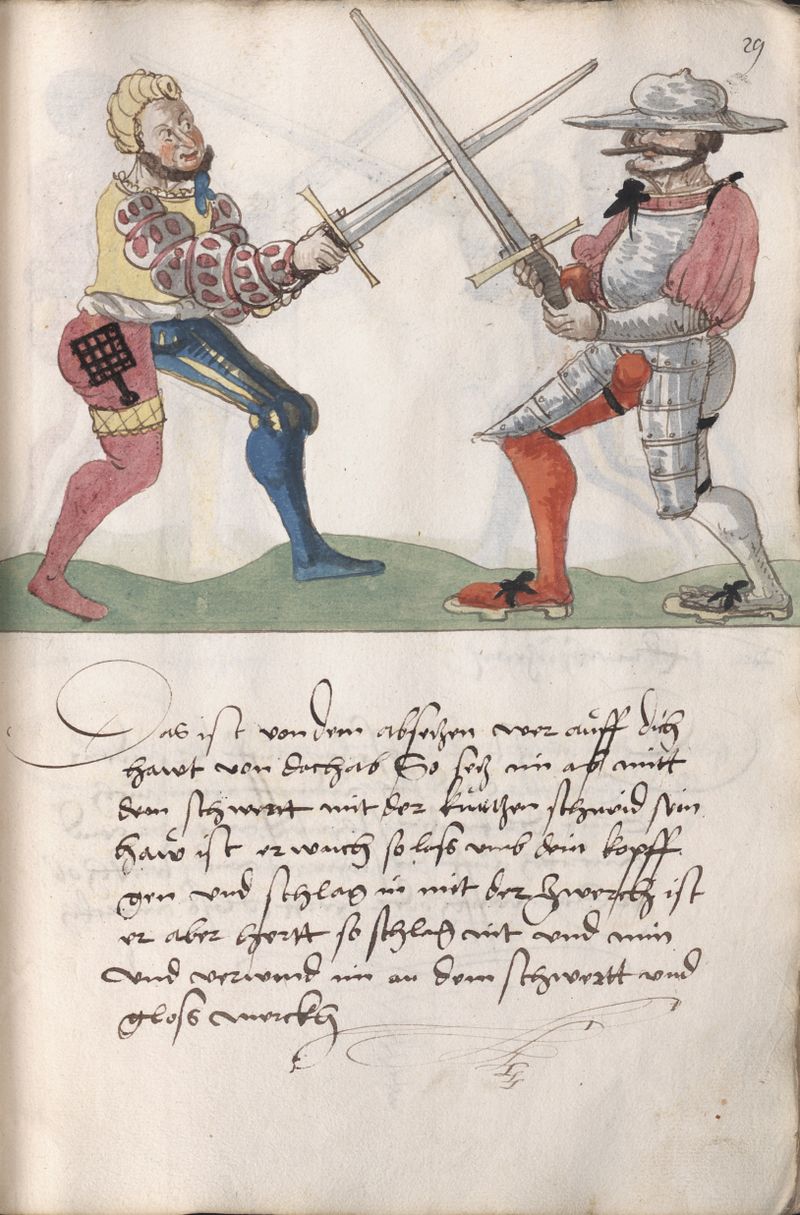 29
Das ist von dem absetzen wer aůff dich
hawt von dachab So setz im ab mitt
dem schwertt mit der kůrtzen schneid sein
haw ist er waich so lass umb dein kopff
gen und schlag in mit der zwerch ist
er aber hertt so schlag nit und
und verwind im an dem schwertt und
merckh